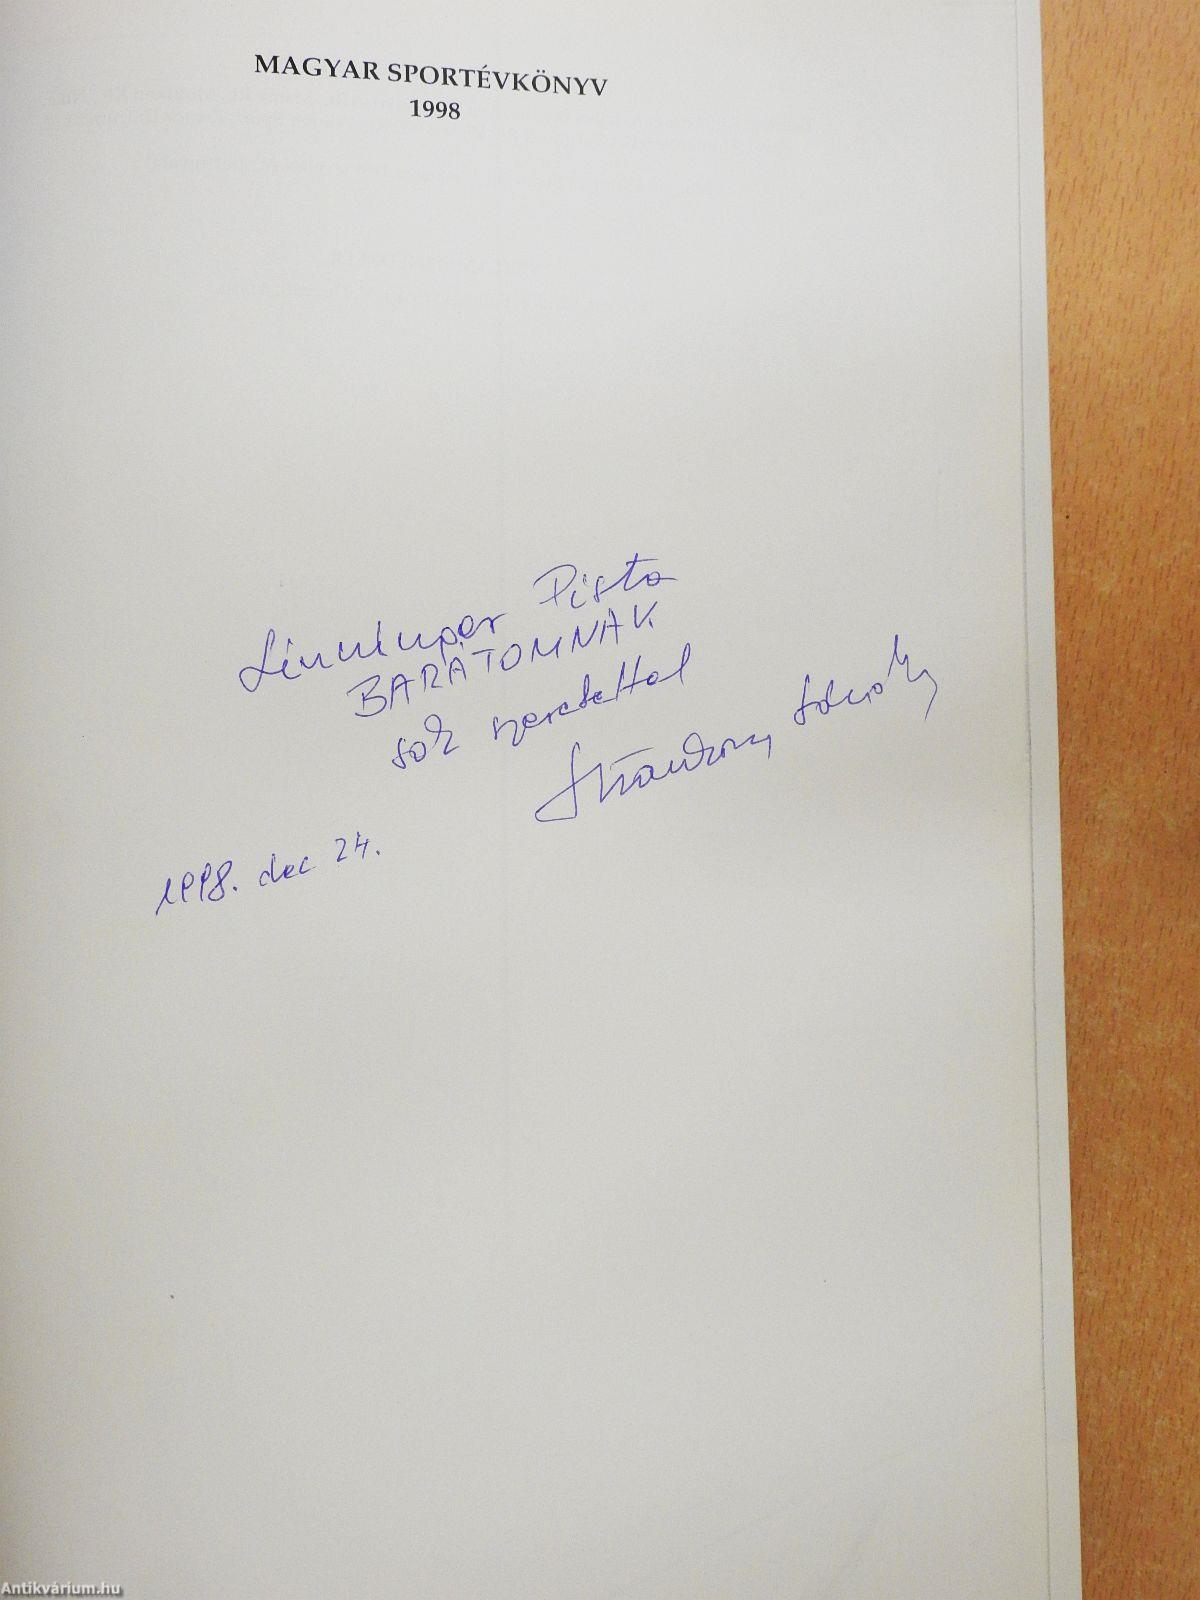 MAGYAR SPORTÉVKÖNYV
1998
Pista
BARÁTOMNAK
sok szeretettel
1998. dec 24.
Antikvárium.hu